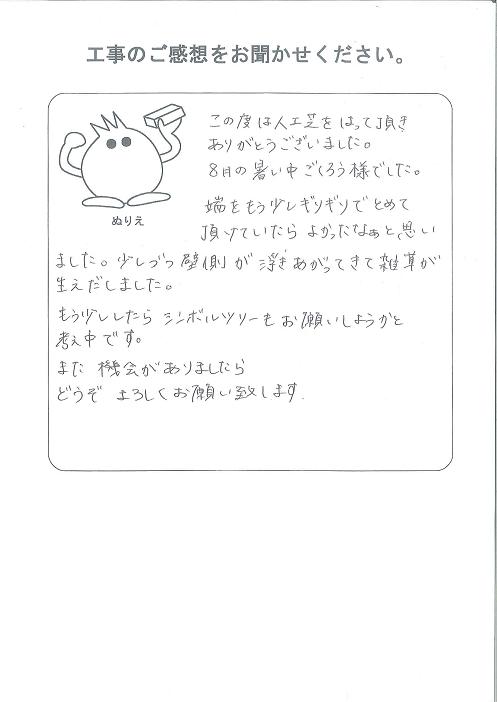 工事のご感想をお聞かせください。
この度は人工芝をはって頂き
ありがとうございました。
8月の暑い中ごくろう様でした。
端をもう少しギリギリでとめて
頂けていたらよかったなぁと思い
ぬりえ
ました。少しづつ壁側が浮きあがってきて雑草が
生えだしました。
もう少ししたらシンボルツリーもお願いしようかと
考え中です。
また機会がありましたら
どうぞよろしくお願い致します.